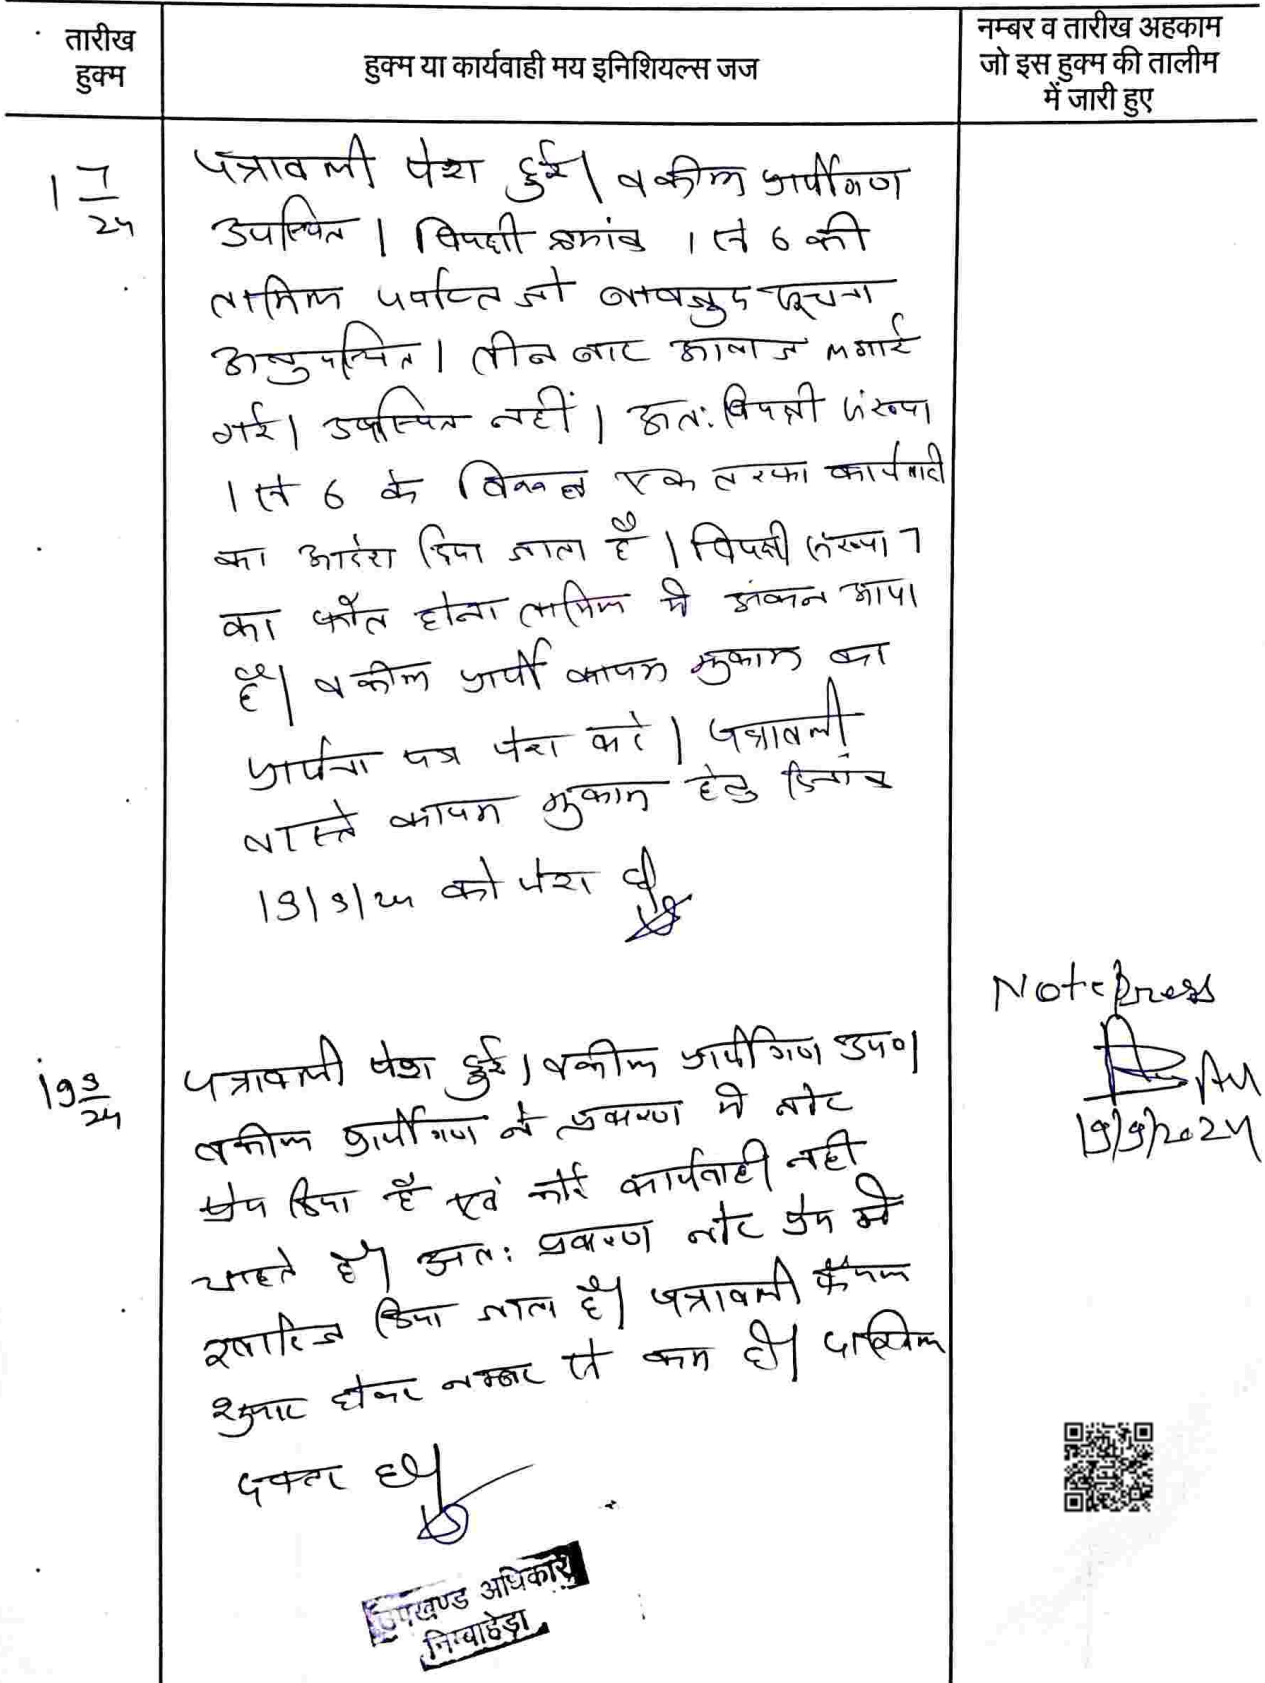 तारीख
हुक्म
हुक्म या कार्यवाही मय इनिशियल्स जज
नम्बर व तारीख अहकाम
जो इस हुक्म की तालीम
में जारी हुए
1 7/24
पत्रावली पेश हुई। वकील प्रार्थीगण
उपस्थित। विपक्षी क्रमांक 1 से 6 की
तामिल पर्याप्त जो बावजुद सूचना
अनुपस्थित। तीन बार आवाज लगाई
गई। उपस्थित नहीं। अतः विपक्षी संख्या
1 से 6 के विरूद्ध एक तरफा कार्यवाही
का आदेश दिया जाता है। विपक्षी संख्या 7
का फौत होना तामिल मे अंकन आया
है। वकील प्रार्थी कायम मुकाम का
प्रार्थना पत्र पेश करे। पत्रावली
वास्ते कायम मुकाम हेतु दिनांक
19/9/24 को पेश हो
19 9/24
पत्रावली पेश हुई। वकील प्रार्थीगण उप०।
वकील प्रार्थीगण ने प्रकरण मे नोट
प्रेस किया है एवं कोई कार्यवाही नही
चाहते है। अतः प्रकरण नोट प्रेस मे
खारिज किया जाता है। पत्रावली फैसल
शुमार होकर नम्बर से कम हो। दाखिल
दफ्तर हो।
Note Press
Adv
19/9/2024
उपखण्ड अधिकारी
निम्बाहेड़ा